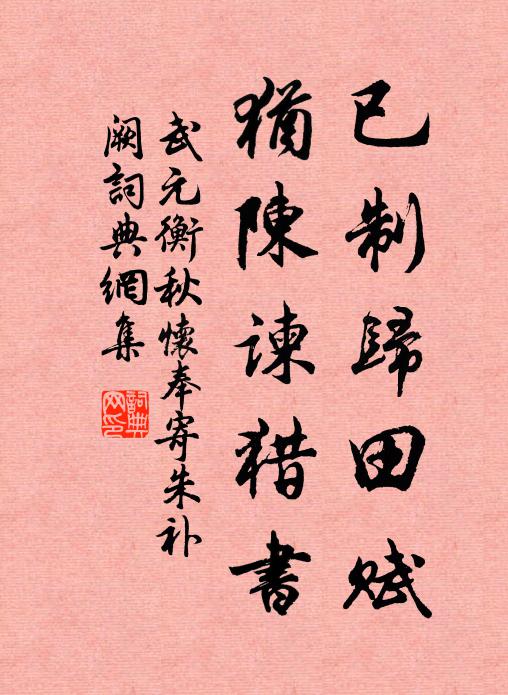 已制歸田賦
猶陳諫猎書
武元衡秋懷奉寄朱补
阙詞典網集
詞典网印